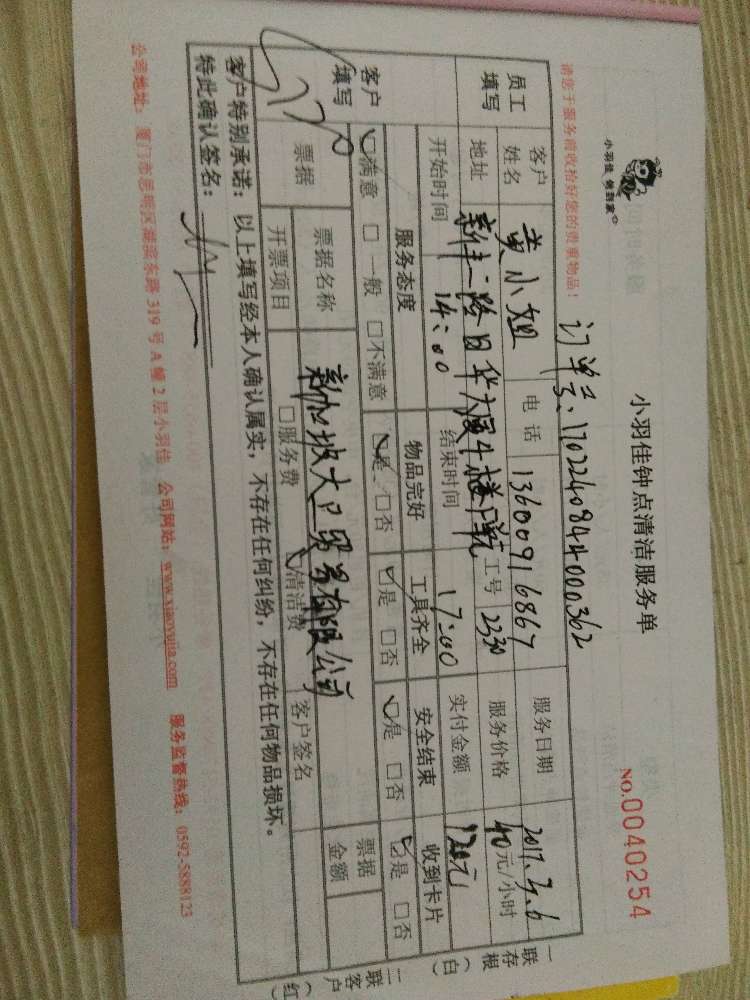 小羽佳 帮到家
小羽佳钟点清洁服务单
NO.0040254
订单号:170224084400362
请您于服务前收拾好您的贵重物品!
员工填写 客户姓名 黄小姐 电话 13600916867 服务日期 2017.3.6
地址 新佳二路日华大厦牛楼 工号 2330 服务价格 40元/小时
开始时间 14:00 结束时间 17:00 实付金额 120元
客户填写 服务态度 物品完好 工具齐全 安全结束 收到卡片
☑满意 □一般 □不满意 ☑是 □否 ☑是 □否 ☑是 □否 ☑是 □否
票据 票据名称 新加坡大口贸易有限公司 票据金额
开票项目 □服务费 ☑清洁费 客户签名
客户特别承诺:以上填写经本人确认属实,不存在任何纠纷,不存在任何物品损坏。
特此确认签名:
公司地址:厦门市思明区湖滨东路319号A幢2层小羽佳 公司网站:www.xiaoyujia.com 服务监督热线:0592-5888123
一联存根(白)
二联客户(红)